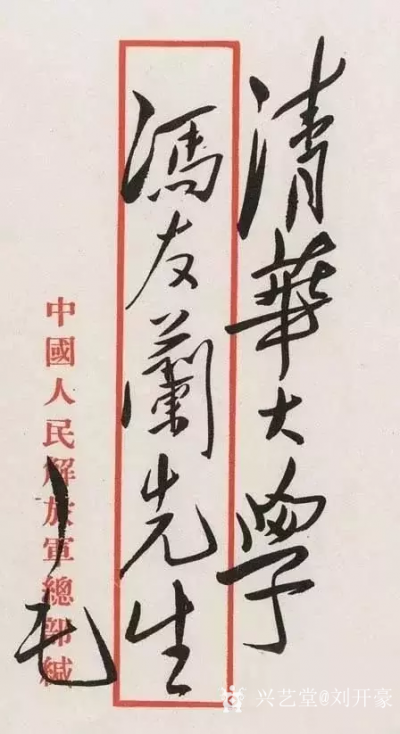 清華大學
馮友蘭先生
中國人民解放軍總部緘
毛
兴艺堂@刘开豪